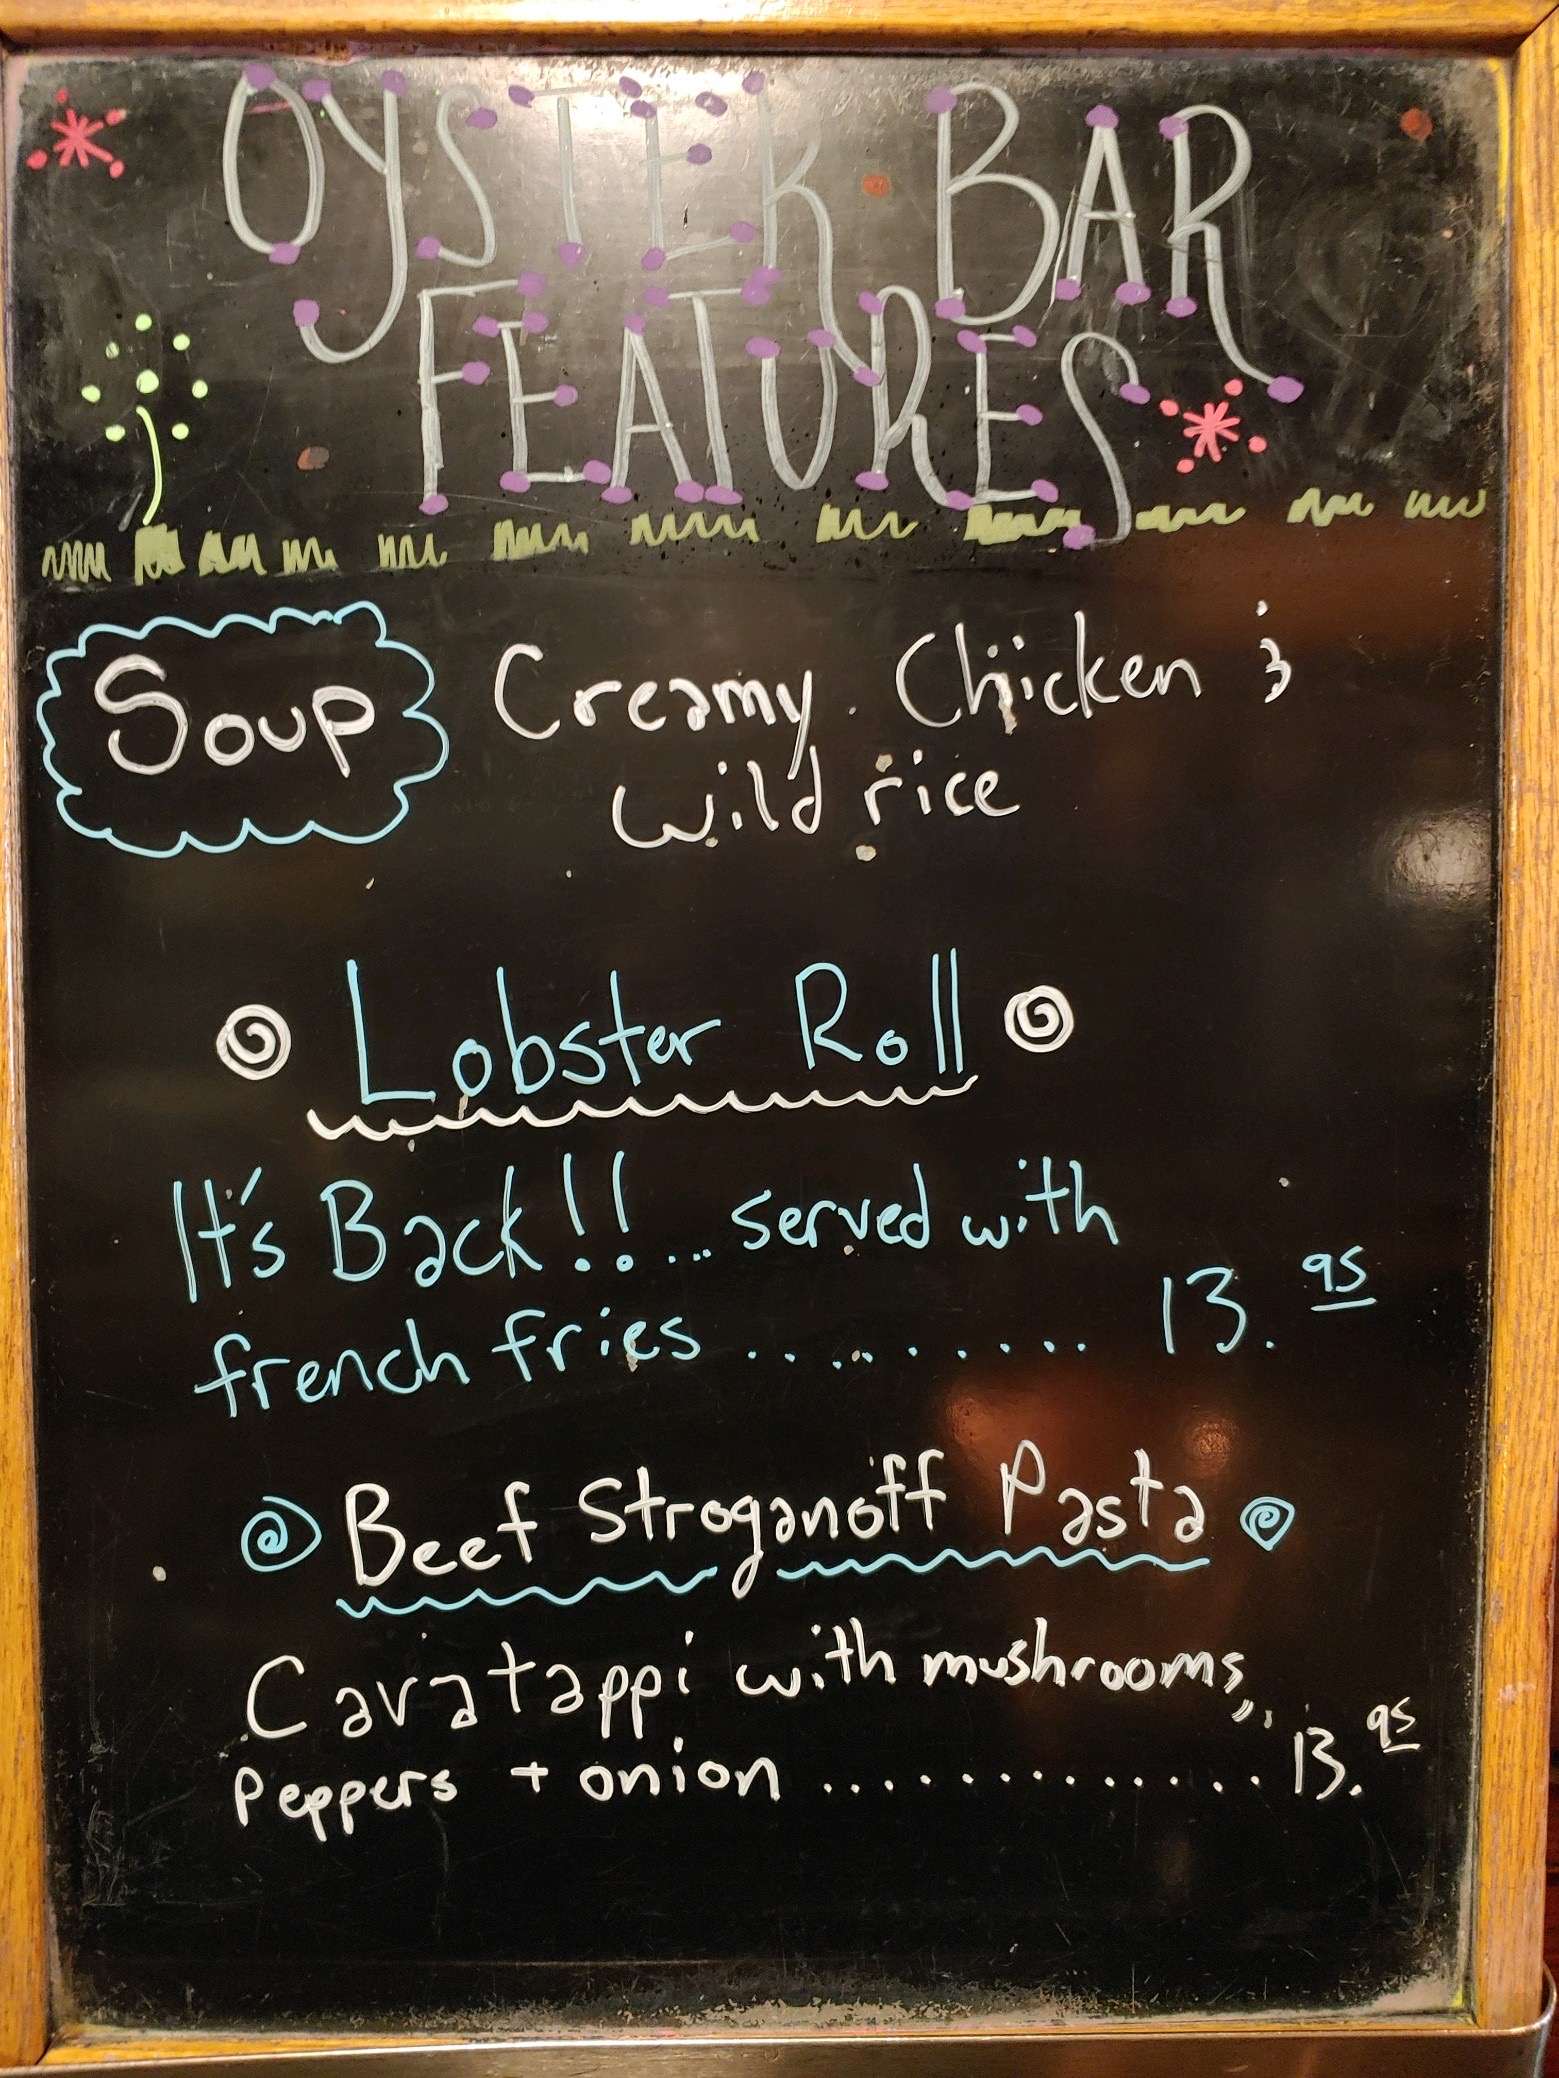 OYSTER BAR
FEATURES
Soup Creamy Chicken &
wild rice
Lobster Roll
It's Back!!... served with
french fries .......... 13.95
Beef Stroganoff Pasta
Cavatappi with mushrooms,
Peppers + onion .............. 13.95